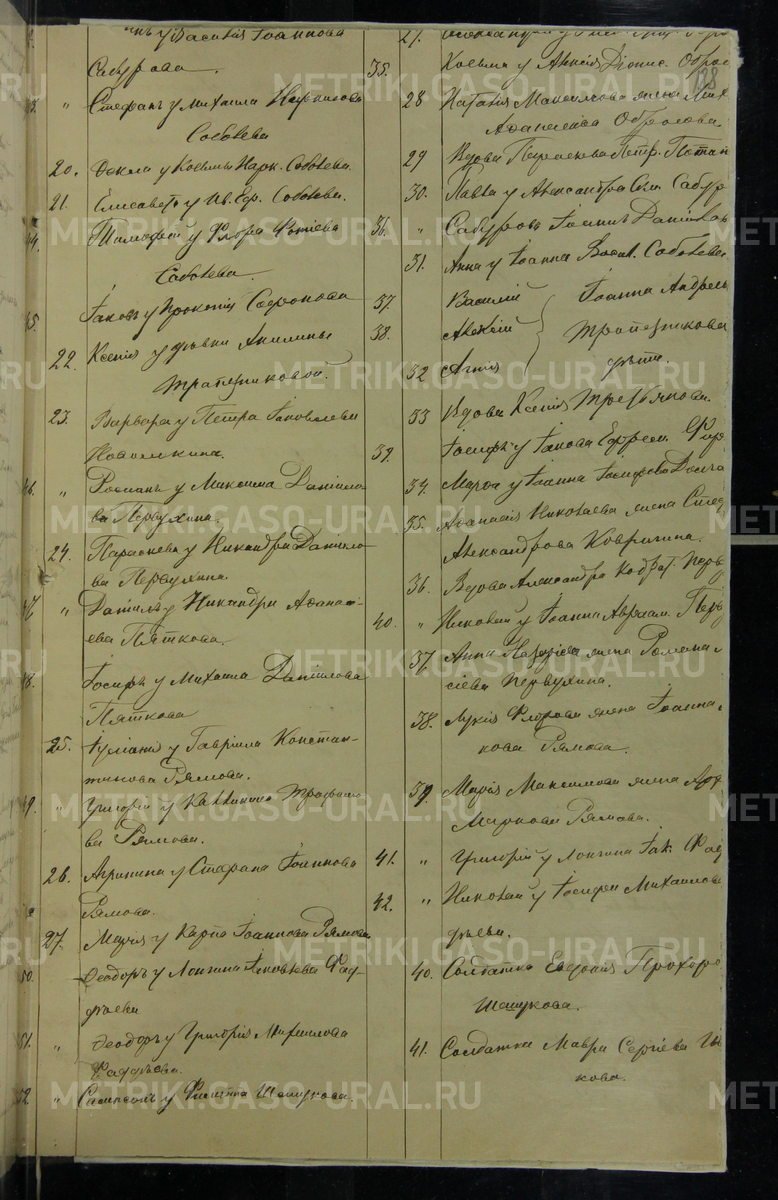 у Василія Іоаннова
Сабурова.
43. " Стефанъ у Михаила
Соболева
20. Фекла у Козьмы Нарк. Соболева
21. Елисаветъ у Ив. Еф. Соболева.
44. Тимофей у Флора Фотіева
Соболева.
45. Іаковъ у Прокопія Софронова
22. Ксенія у дѣвки Акилины
Трапезниковой.
23. Варвара у Петра Іаковлева
46. " Романъ у Максима Даніило
ва Первухина.
24. Параскева у Никандра Данило
ва Первухина.
47 " Даніилъ у Никандра Афанась
ева Пяткова.
48. Іосифъ у Михаила Даніилова
Пяткова
25. Іуліанія у Гавріила Констан
тинова Рямова.
49. " Григорій у Каллиника Трофимо
ва Рямова.
26. Агрипина у Стефана Іоаннова
Рямова.
27. Марія у Карпа Іоаннова Рямова
50. Ѳеодоръ у Лонгина Іаковлева Фад
дѣева
51. " Ѳеодоръ у Григорія Михаилова
Фаддѣева.
52 " Сампсонъ у Филиппа Шашукова.
27.
35. Козьма у Алексія Діонис.
128
28 Наталія Максимова жена Мих
29 Вдова Параскева Петр. Потап
30. Павла у Александра Сабур
36. " Сабуровъ Іоаннъ Даніилов
31. Анна у Іоанна Васил. Соболева
37. Василій Іоанна Андрее
38. Алексій Трапезникова
32 Агнія дѣти.
33 Вдова Ксенія Третьякова.
39. Іосифъ у Іакова Ефрем.
34. Марѳа у Іоанна Іосифова
35. Аѳанасія Николаева жена Стеф
Александрова Ковригина.
36. Вдова Александра Кодрат. Перв
40. " Николай у Іоанна Авраам. Перв
37. Анна жена Романа
сіева Первухина.
38. Лукія Флорова жена Іоанна
кова Рямова.
39. Марія Максимова жена
Маркова Рямова.
41. " Григорій у Лонгина Іак. Фад
42. " Николай у Іосифа Михаилова
дѣева.
40. Солдатка Евдокія Прохоро
Шашукова.
41. Солдатка Мавра Сергіева
кова.
METRIKI.GASO-URAL.RU